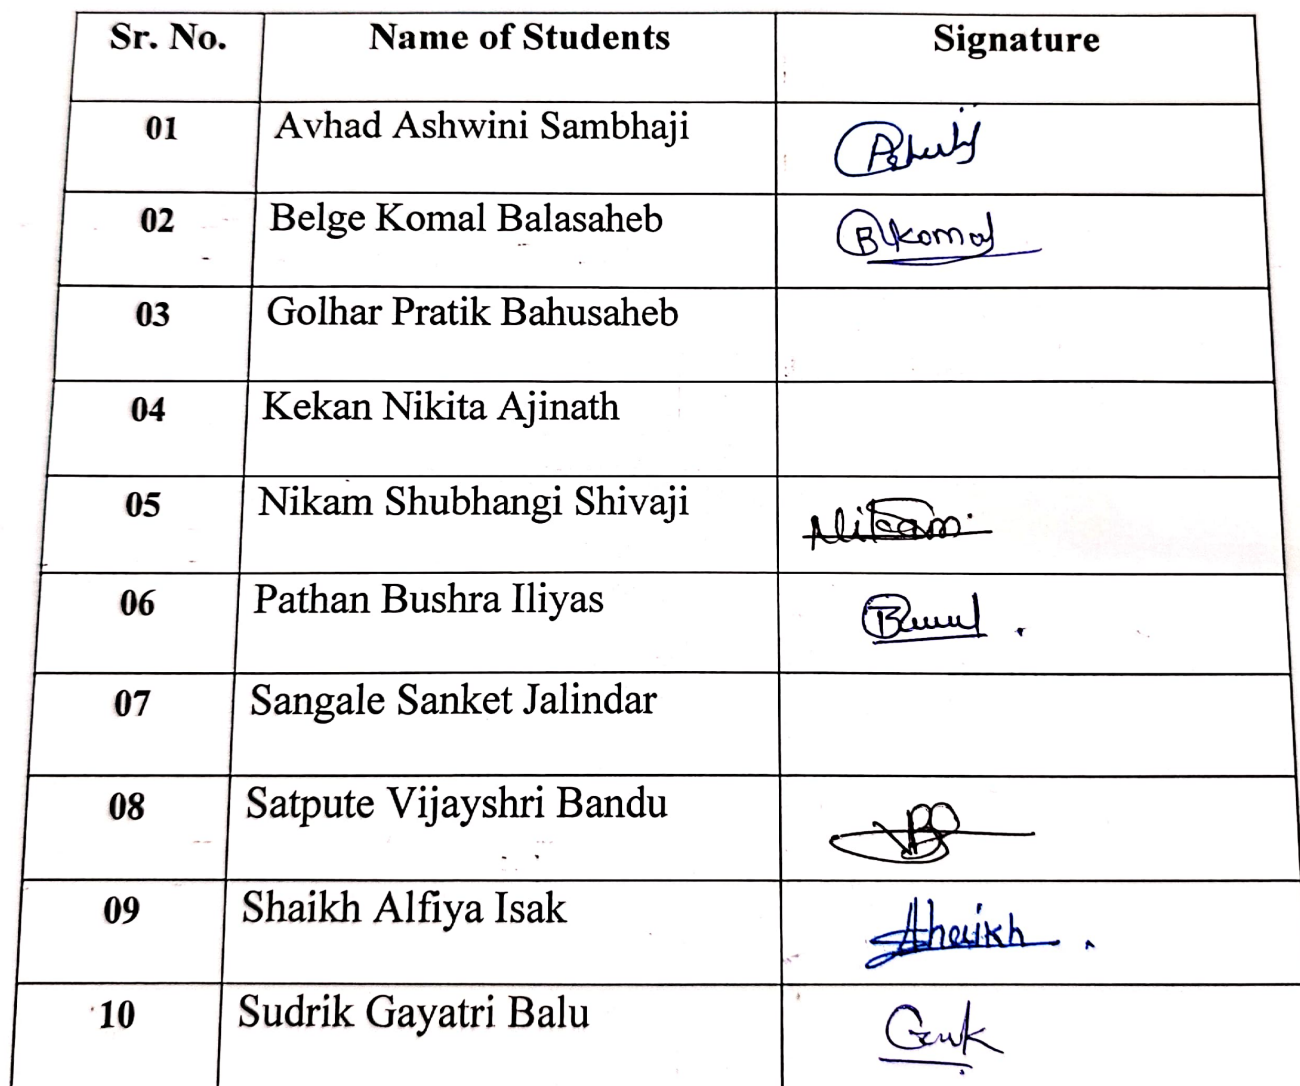 Sr. No. Name of Students Signature
01 Avhad Ashwini Sambhaji
02 Belge Komal Balasaheb BKomal
03 Golhar Pratik Bahusaheb
04 Kekan Nikita Ajinath
05 Nikam Shubhangi Shivaji Nikam
06 Pathan Bushra Iliyas
07 Sangale Sanket Jalindar
08 Satpute Vijayshri Bandu
09 Shaikh Alfiya Isak Shaikh
10 Sudrik Gayatri Balu